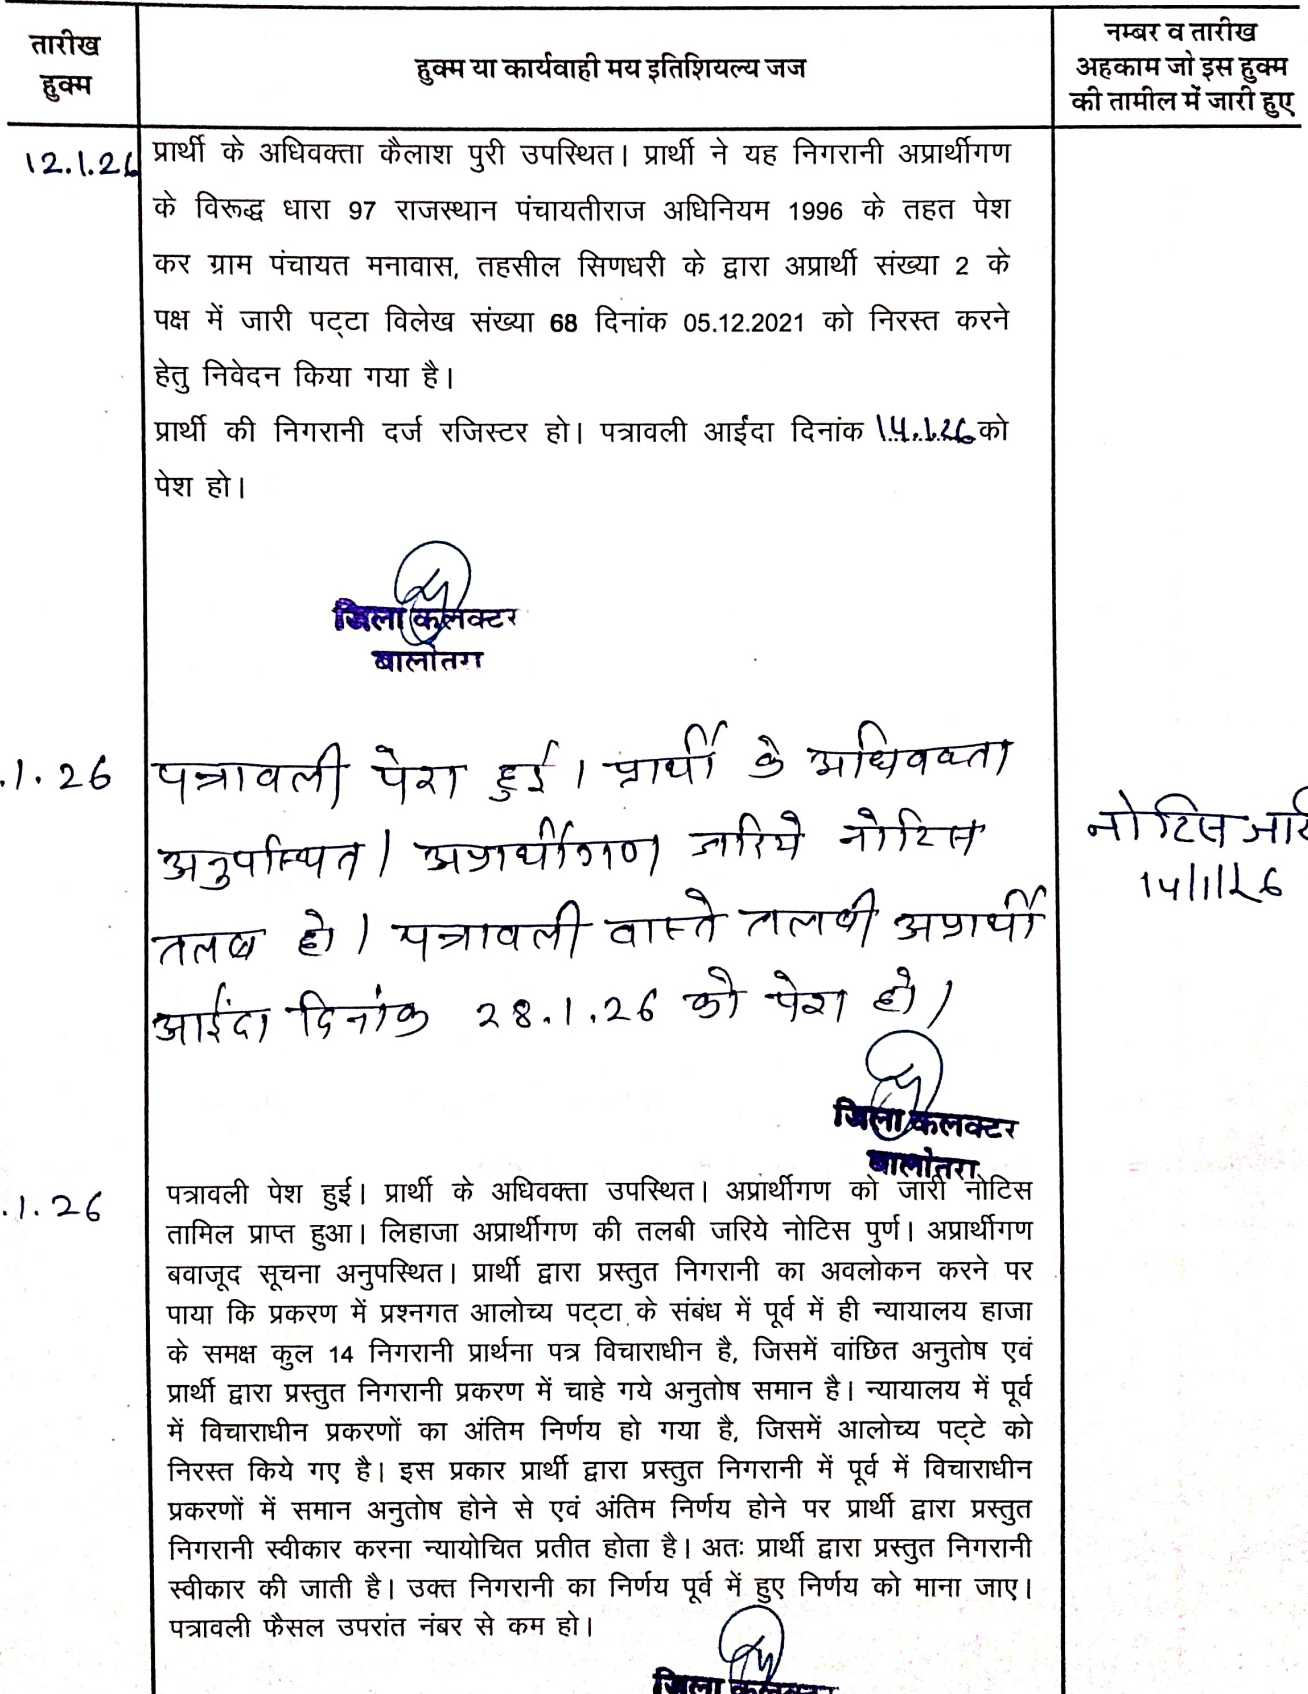 तारीख
हुक्म
हुक्म या कार्यवाही मय इतिशियल्य जज
नम्बर व तारीख
अहकाम जो इस हुक्म
की तामील में जारी हुए
12.1.26
प्रार्थी के अधिवक्ता कैलाश पुरी उपस्थित। प्रार्थी ने यह निगरानी अप्रार्थीगण
के विरूद्ध धारा 97 राजस्थान पंचायतीराज अधिनियम 1996 के तहत पेश
कर ग्राम पंचायत मनावास, तहसील सिणधरी के द्वारा अप्रार्थी संख्या 2 के
पक्ष में जारी पट्टा विलेख संख्या 68 दिनांक 05.12.2021 को निरस्त करने
हेतु निवेदन किया गया है।
प्रार्थी की निगरानी दर्ज रजिस्टर हो। पत्रावली आईंदा दिनांक 14.1.26 को
पेश हो।
जिला कलक्टर
बालोतरा
.1.26
पत्रावली पेश हुई। प्रार्थी के अधिवक्ता
अनुपस्थित। अप्रार्थीगण जरिये नोटिस
तलब हो। पत्रावली वास्ते तलबी अप्रार्थी
आईंदा दिनांक 28.1.26 को पेश हो।
नोटिस जारी
14/1/26
जिला कलक्टर
बालोतरा
.1.26
पत्रावली पेश हुई। प्रार्थी के अधिवक्ता उपस्थित। अप्रार्थीगण को जारी नोटिस
तामिल प्राप्त हुआ। लिहाजा अप्रार्थीगण की तलबी जरिये नोटिस पुर्ण। अप्रार्थीगण
बवाजूद सूचना अनुपस्थित। प्रार्थी द्वारा प्रस्तुत निगरानी का अवलोकन करने पर
पाया कि प्रकरण में प्रश्नगत आलोच्य पट्टा के संबंध में पूर्व में ही न्यायालय हाजा
के समक्ष कुल 14 निगरानी प्रार्थना पत्र विचाराधीन है, जिसमें वांछित अनुतोष एवं
प्रार्थी द्वारा प्रस्तुत निगरानी प्रकरण में चाहे गये अनुतोष समान है। न्यायालय में पूर्व
में विचाराधीन प्रकरणों का अंतिम निर्णय हो गया है, जिसमें आलोच्य पट्टे को
निरस्त किये गए है। इस प्रकार प्रार्थी द्वारा प्रस्तुत निगरानी में पूर्व में विचाराधीन
प्रकरणों में समान अनुतोष होने से एवं अंतिम निर्णय होने पर प्रार्थी द्वारा प्रस्तुत
निगरानी स्वीकार करना न्यायोचित प्रतीत होता है। अतः प्रार्थी द्वारा प्रस्तुत निगरानी
स्वीकार की जाती है। उक्त निगरानी का निर्णय पूर्व में हुए निर्णय को माना जाए।
पत्रावली फैसल उपरांत नंबर से कम हो।
जिला कलक्टर